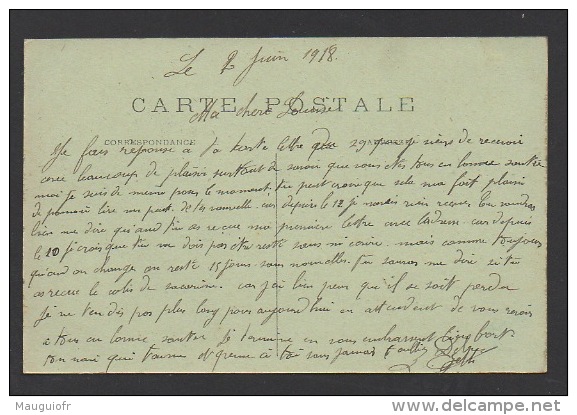 Le 2 Juin 1918.
CARTE POSTALE
Ma chere Louise
CORRESPONDANCE
Je fais reponse a ta lettre 29 que je viens de recevoir
avec beaucoup de plaisir surtout de savoir que vous etes tous en bonne santée
moi je suis de meme pour le moment. tu peut croire que sela ma fait plaisir
de pouvoir lire un peut de tes nouvelle. car depuis le 12 je navais rien recue. tu voudras
bien me dire quand tu as recue ma premiere lettre avec car depuis
le 10 je crois que tu ne dois pas etre resté sans m'ecrire. mais comme toujours
quand on change on reste 15 jours sans nouvelles. tu sauras me dire si tu
as recue le colis de car j'ai bien peur qu'il se soit perdue
Je ne ten dis pas plus long pour aujourd'hui en attendent de vous revoir
a tous en bonne santée Je termine en vous embrassant bien fort
ton qui t'aime et pense à toi sans jamais t'oublier
Mauguiofr
http://www.delcampe.net